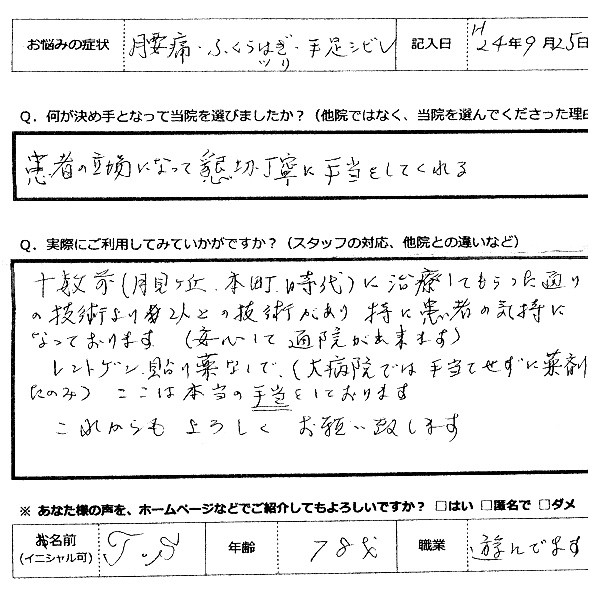 お悩みの症状 腰痛・ふくらはぎ・手足シビレ 記入日 H24年9月25日
ツリ
Q．何が決め手となって当院を選びましたか？（他院ではなく、当院を選んでくださった理由
患者の立場になって懇切丁寧に手当をしてくれる
Q．実際にご利用してみていかがですか？（スタッフの対応、他院との違いなど）
十数年前(月見ヶ丘.本町.時代)に治療してもらった通り
の技術より 2人との技術があり 特に患者の気持に
なっております (安心して通院が出来ます)
レントゲン.貼り薬なしで、(大病院では手当てせずに薬剤
だのみ) ここは本当の手当をしております
これからも よろしく お願い致します
※ あなた様の声を、ホームページなどでご紹介してもよろしいですか？ □はい □匿名で □ダメ
お名前 T.S 年齢 78才 職業 遊んでます
(イニシャル可)